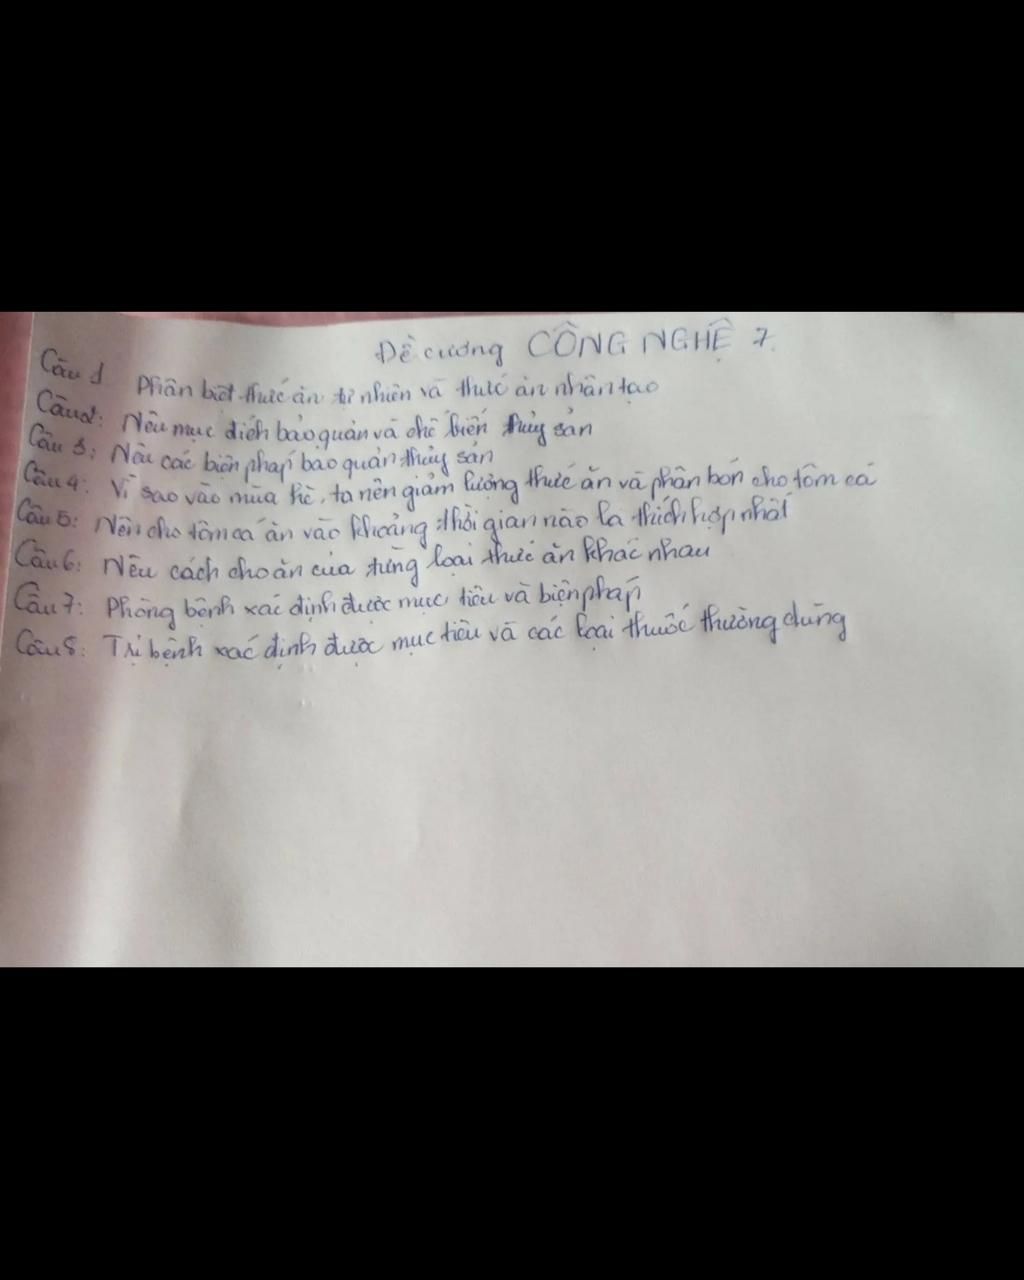 Đề cương CÔNG NGHỆ 7.
Câu 1 Phân biệt thức ăn tự nhiên và thức ăn nhân tạo
Câu 2: Nêu mục đích bảo quản và chế biến thủy sản
Câu 3: Nêu các biện pháp bảo quản thủy sản
Câu 4: Vì sao vào mùa hè, ta nên giảm lượng thức ăn và phân bón cho tôm cá
Câu 5: Nên cho tôm cá ăn vào khoảng thời gian nào là thích hợp nhất
Câu 6: Nêu cách cho ăn của từng loại thức ăn khác nhau
Câu 7: Phòng bệnh xác định được mục tiêu và biện pháp
Câu 8: Trị bệnh xác định được mục tiêu và các loại thuốc thường dùng